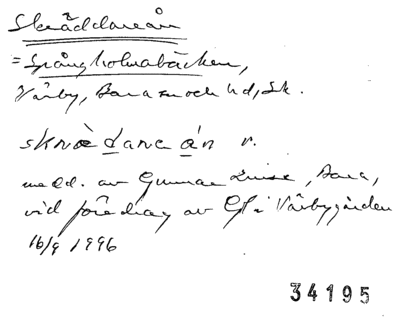 Skräddareån
= Spångholmabäcken,
Värby, Bara sn och hd, Sk.
skrædarean r.
medd. av Gunnar , Bara,
vid föredrag av GH i Värbygården
16/9 1996
34195